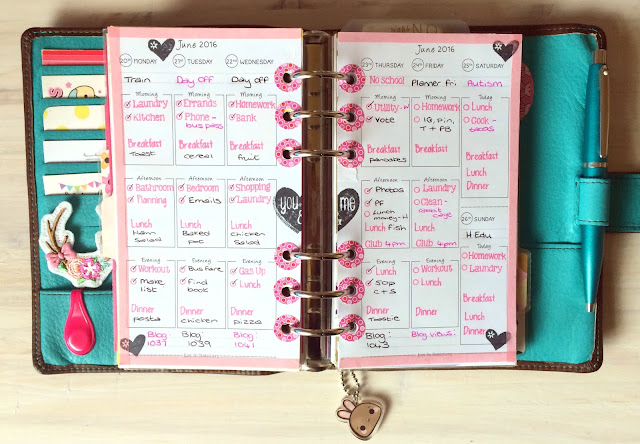 June 2016
20TH MONDAY
Train
Morning
Laundry
Kitchen
Breakfast
Toast
Afternoon
Bathroom
Planning
Lunch
Ham
Salad
Evening
Workout
Make
list
Dinner
pasta
Blog:
1037
21ST TUESDAY
Day off
Morning
Errands
Phone -
bus pass
Breakfast
cereal
Afternoon
Bedroom
Emails
Lunch
Baked
pot
Evening
Bus fare
Find
book
Dinner
chicken
Blog:
1039
22ND WEDNESDAY
Day off
Morning
Homework
Bank
Breakfast
fruit
Afternoon
Shopping
Laundry
Lunch
Chicken
Salad
Evening
Gas Up
Lunch
Dinner
pizza
Blog:
1041
you
&
me
June 2016
23RD THURSDAY
No school
Morning
Utility - H
Vote
Breakfast
pancakes
Afternoon
Photos
PF
Lunch
money - H
Lunch Fish
Club 4pm
Evening
Lunch
Sop
C + S
Dinner
Toastie
Blog:
1043
24TH FRIDAY
Planner Fri
Morning
Homework
IG, Pin,
T + PB
Breakfast
Afternoon
Laundry
Clean -
Lunch
Club 4pm
Evening
Workout
Lunch
Dinner
Blog views:
25TH SATURDAY
Autism
Today
Lunch
Cook -
tacos
Breakfast
Lunch
Dinner
26TH SUNDAY
H Edu
Today
Homework
Laundry
Breakfast
Lunch
Dinner